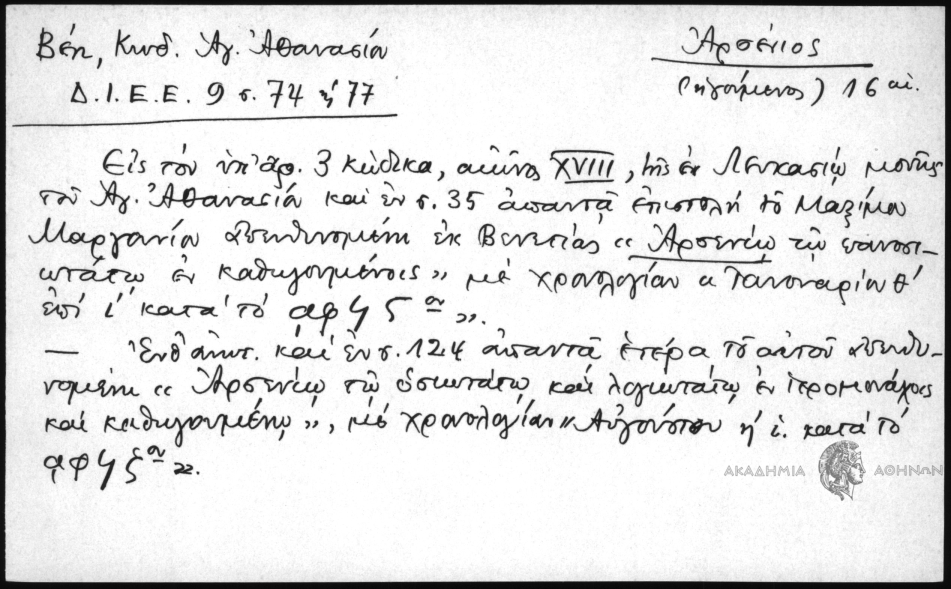 Βέη, Κωδ. Ἁγ. Ἀθανασίου
Ἀρσένιος
Δ.Ι.Ε.Ε. 9 σ. 74 ἠ 77
(ἡγούμενος) 16 αἰ.
Εἰς τὸν ὑπ' ἀρ. 3 κώδικα, αἰῶνος XVIII, τῆς ἐν Λευκασίῳ μονῆς
τοῦ Ἁγ. Ἀθανασίου καὶ ἐν σ. 35 ἀπαντᾷ ἐπιστολή τοῦ Μαξίμου
Μαργουνίου ἀπευθυνομένη ἐκ Βενετίας « Ἀρσενίῳ τῷ πανοσι-
ωτάτῳ ἐν καθηγουμένοις », μὲ χρονολογίαν « Ἰανουαρίου θ'
ἐπὶ ι' κατὰ τὸ αφϟϛον ».
— Ἔνθ' ἀνωτ. καὶ ἐν σ. 124 ἀπαντᾷ ἑτέρα τοῦ αὐτοῦ ἀπευθυ-
νομένη « Ἀρσενίῳ τῷ ὁσιωτάτῳ καὶ λογιωτάτῳ ἐν ἱερομονάχοις
καὶ καθηγουμένῳ », μὲ χρονολογίαν « Αὐγούστου η ι. κατὰ τὸ
αφϟϛον ».
ΑΚΑΔΗΜΙΑ ΑΘΗΝΩΝ